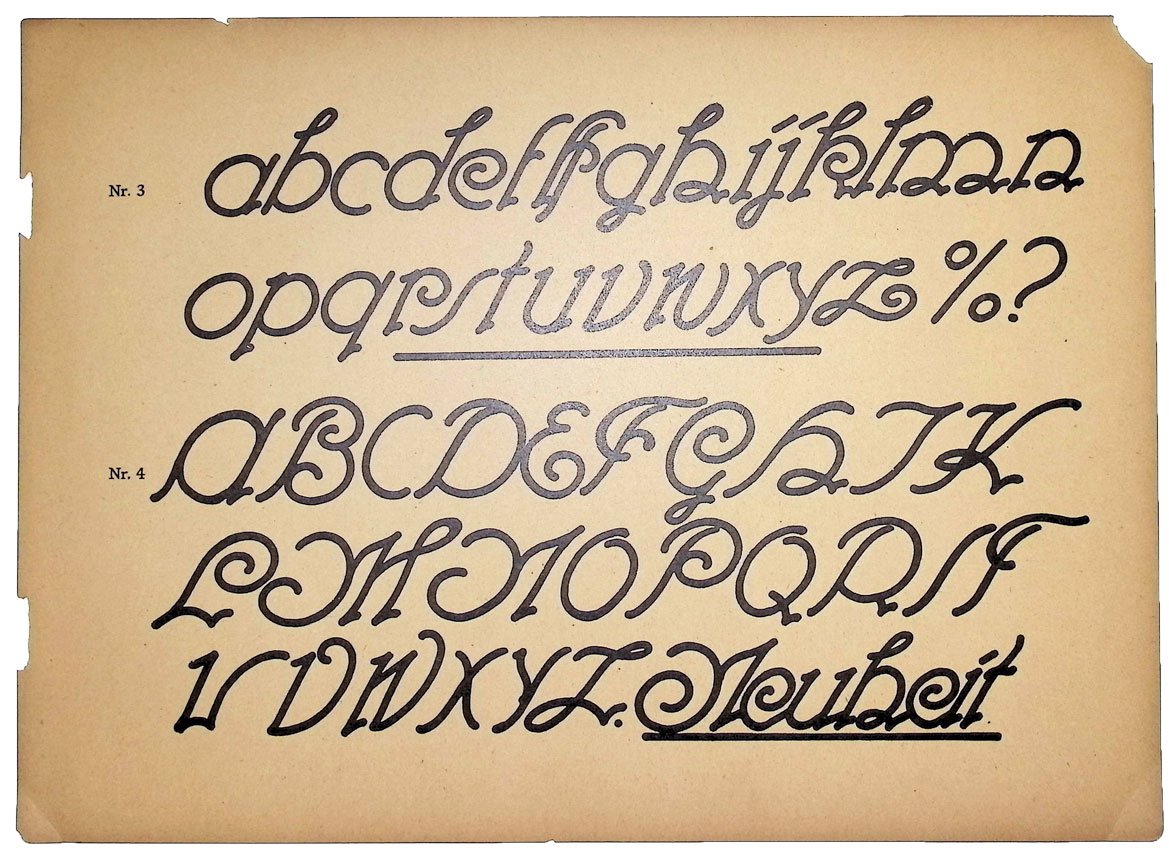 Nr. 3 abcdeffghijklmn
opqrstuvwxyz%?
Nr. 4 ABCDEFGHIK
LMNOPQRST
UVWXYZ. Neuheit